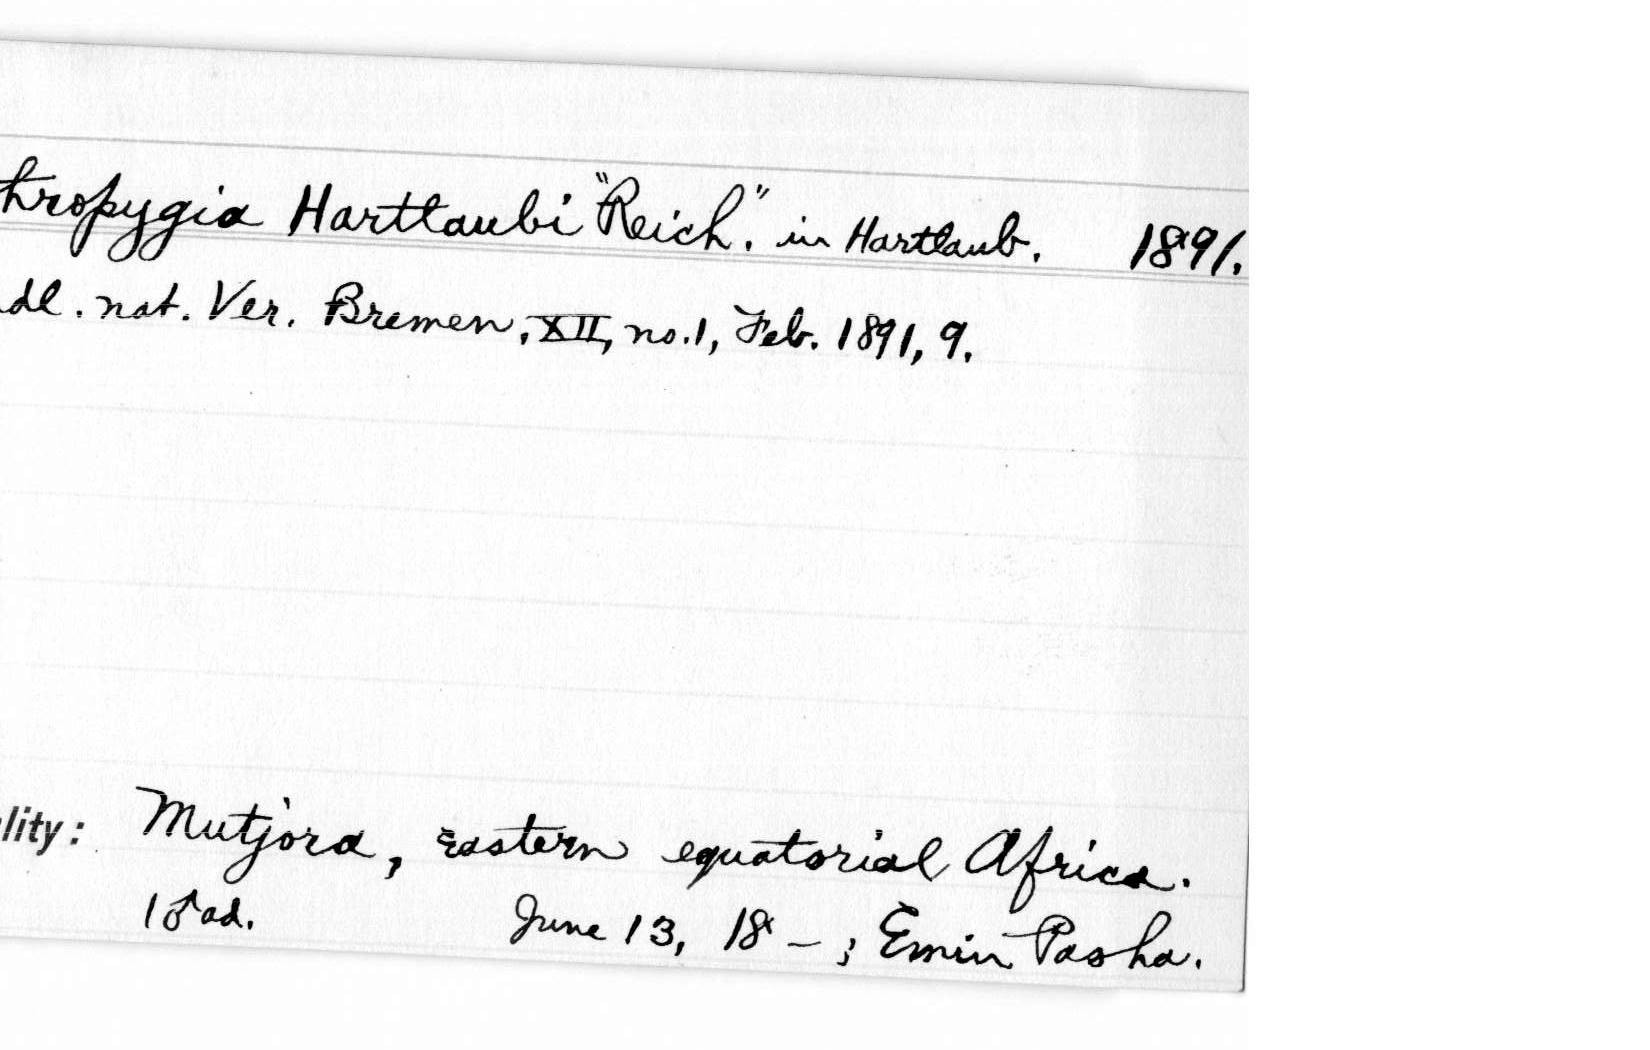 thropygia Hartlaubi "Reich." in Hartlaub. 1891.
dl. nat. Ver. Bremen, XII, no.1, Feb. 1891, 9.
lity: Mutjora, eastern equatorial Africa.
1♂ad. June 13, 18 – ; Emin Pasha.